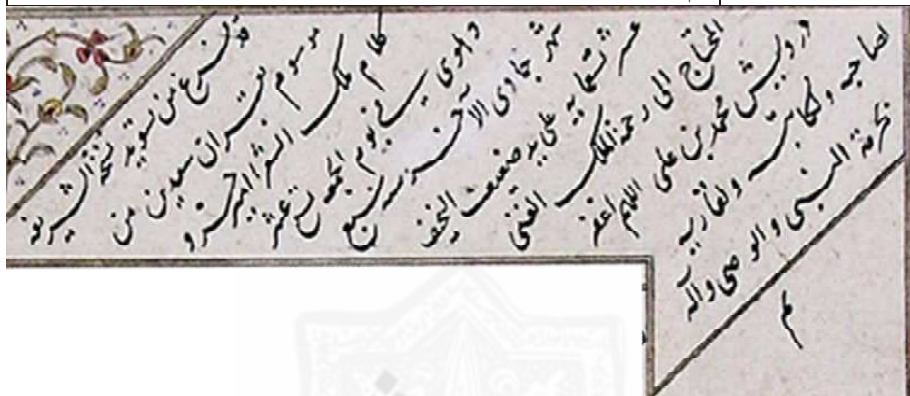 قد فرغ من تسوید نسخة الشریفه
موسوم بقران سعدین من
کلام ملک الشعرا امیر خسرو
دهلوی فی یوم الجمعه عشر
شهر جمادی الآخر سنه سبع
عشر تسعمایة علی ید ضعیف النحیف
المحتاج الی رحمة الملک الغنی
درویش محمد بن علی اللهم اغفر
لصاحبه ولکاتبه ولقاریه
بحرمة النبی والوصی وآله
تم